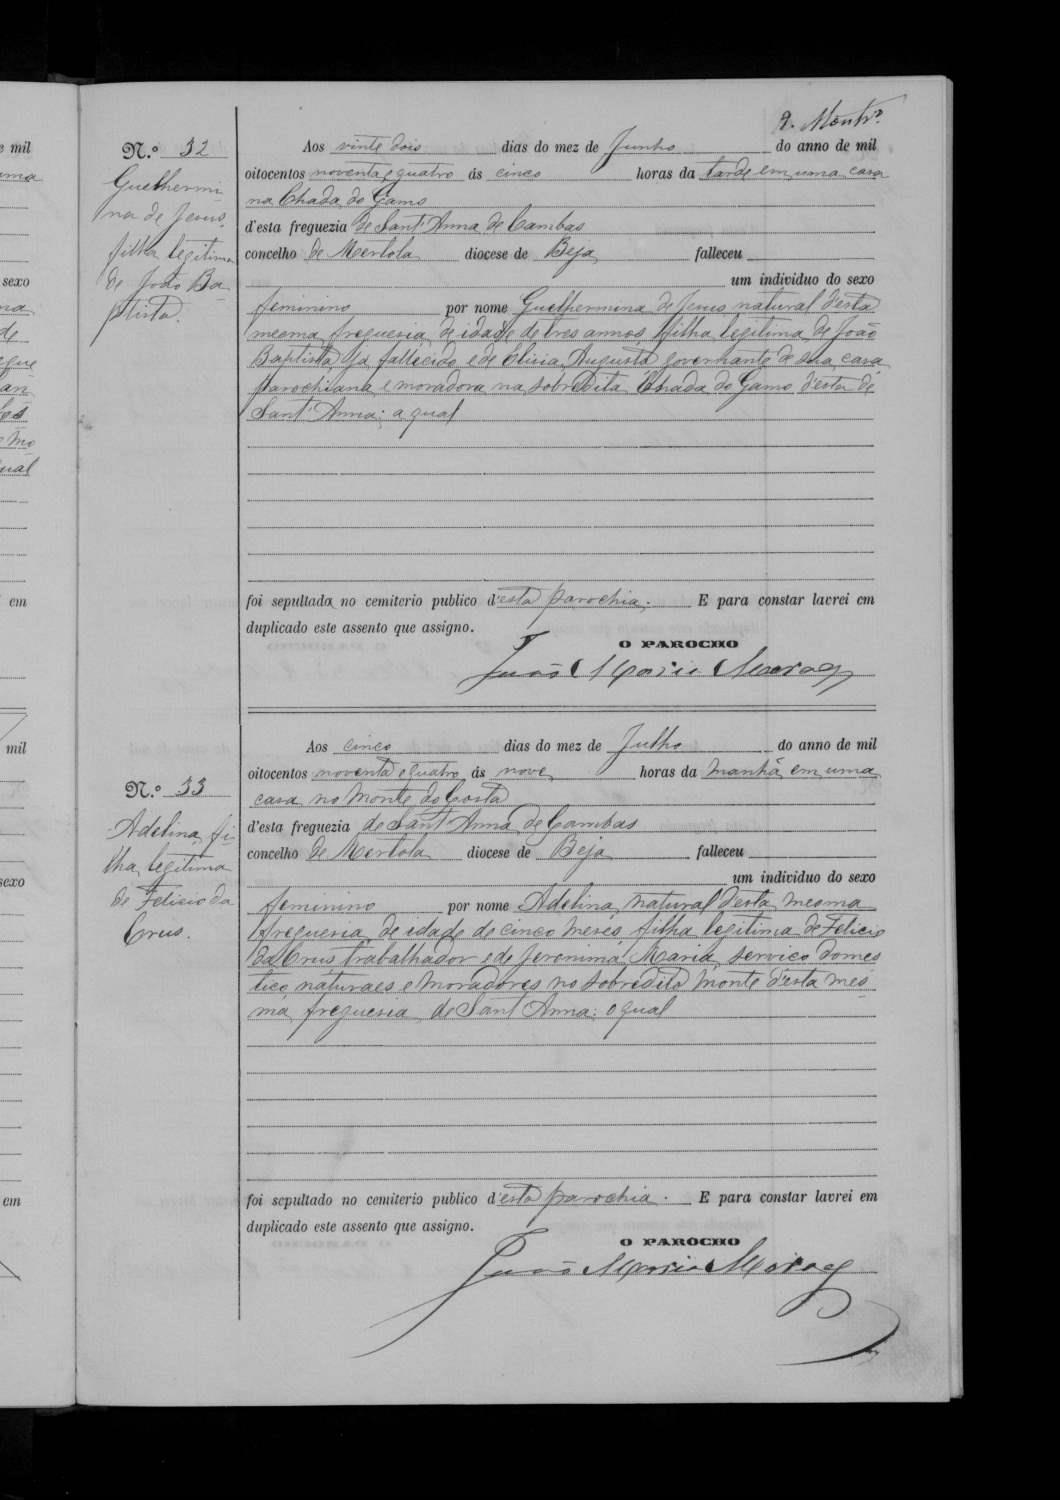 9. Montrº.
N.º 32
Guelhermi
na de Jesus,
filha legitima
de João Ba
ptista.
Aos vinte dois dias do mez de Junho do anno de mil
oitocentos noventa e quatro ás cinco horas da tarde em uma casa
na Chada do Gamo
d'esta freguezia de Sant'Anna de Cambas
concelho de Mertola diocese de Beja falleceu
um individuo do sexo
feminino por nome Guelhermina de Jesus natural d'esta
mesma freguesia de idade de tres annos, filha legitima de João
Baptista, ja fallecido e de Elisia Augusta governante de sua casa
parochiana e moradora na sobredita Chada do Gamo d'esta de
Sant'Anna; a qual
foi sepultada no cemiterio publico d'esta parochia. E para constar lavrei em
duplicado este assento que assigno.
O PAROCHO
João Maria Moraes
N.º 33
Adelina, fi-
lha legitima
de Felicio da
Crus.
Aos cinco dias do mez de Julho do anno de mil
oitocentos noventa e quatro ás nove horas da manhã em uma
casa no Monte do Costa
d'esta freguezia de Sant'Anna de Cambas
concelho de Mertola diocese de Beja falleceu
um individuo do sexo
feminino por nome Adelina, natural d'esta mesma
freguesia, de idade de cinco meses, filha legitima de Felicio
da Crus trabalhador e de Jeronima Maria, serviço domes
tico, naturaes e moradores no sobredito Monte d'esta mes
ma freguesia de Sant'Anna: o qual
foi sepultado no cemiterio publico d'esta parochia. E para constar lavrei em
duplicado este assento que assigno.
O PAROCHO
João Maria Moraes